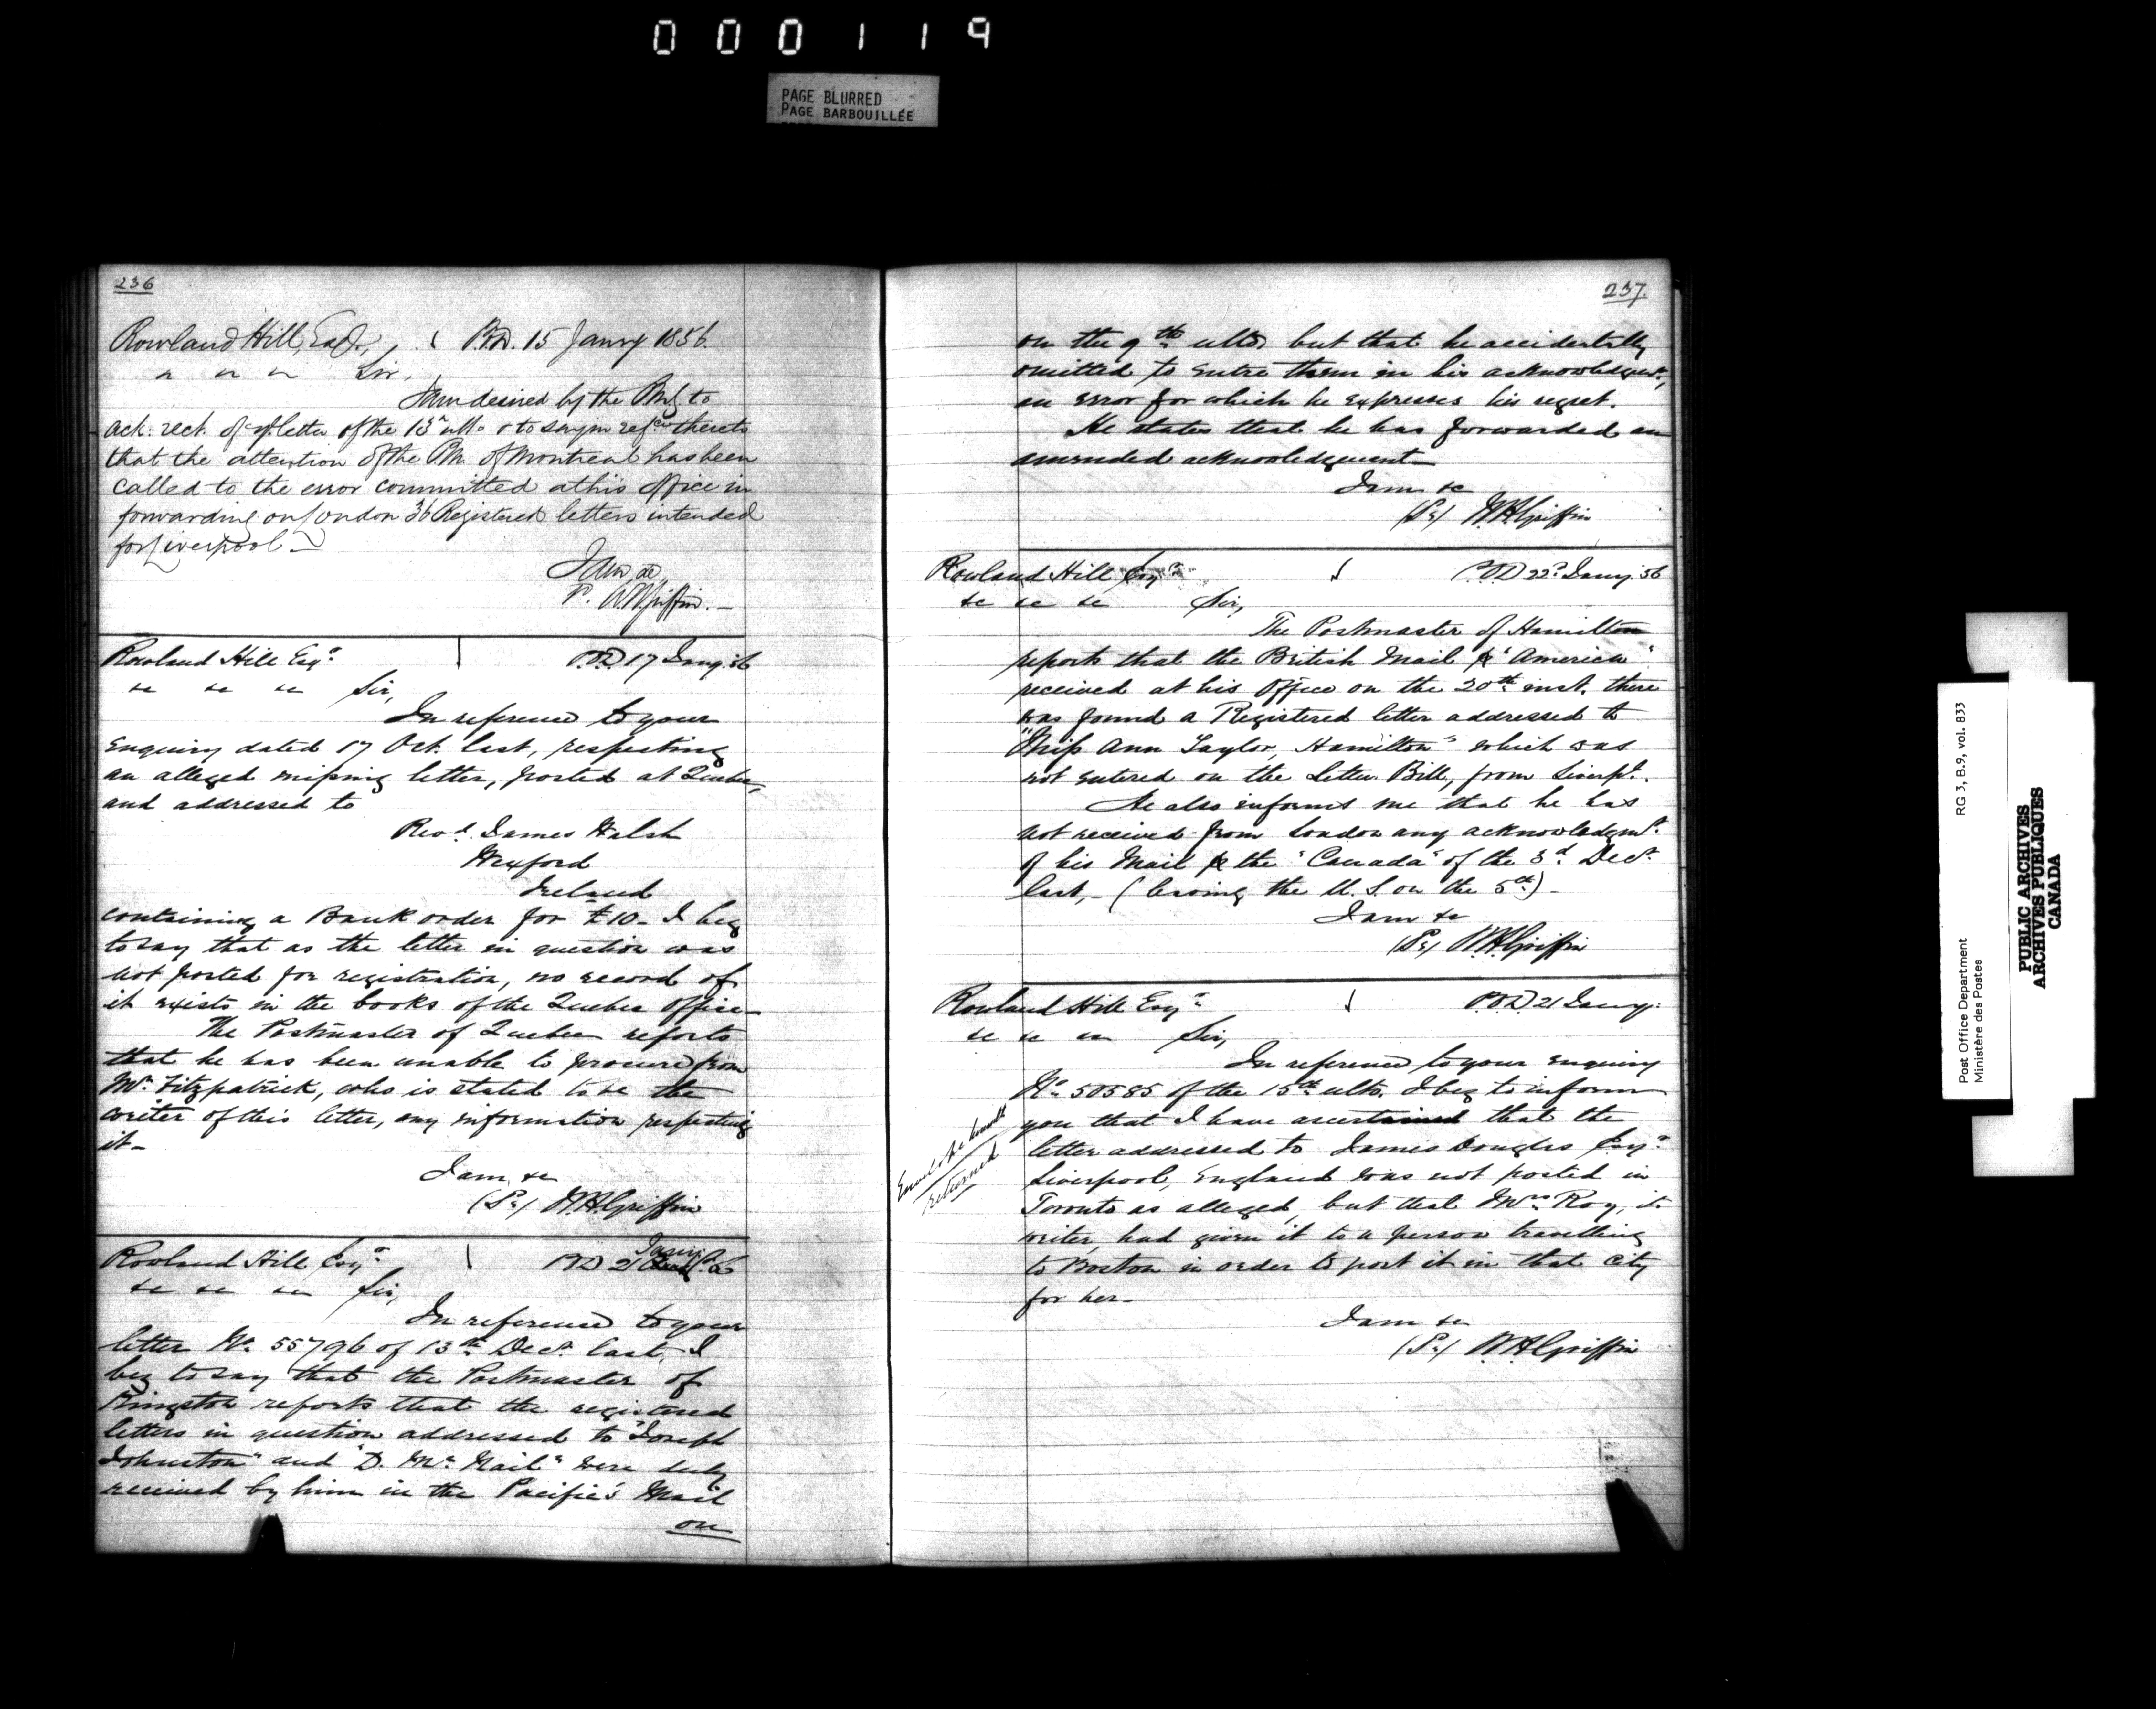 000119
PAGE BLURRED
PAGE BARBOUILLÉE
236
Rowland Hill, Esqr., P.O.D. 15 Janry 1856.
" " " Sir,
I am desired by the PMG to
ack: rect. of yr. letter of the 13th ulto. & to say in refce. thereto
that the attention of the PM. of Montreal has been
called to the error committed at his office in
forwarding on London 36 Registered letters intended
for Liverpool —
I am, &c,
W.H. Griffin. —
Rowland Hill Esqr. P.O.D. 17 Jany. 56
&c &c &c Sir,
In reference to your
enquiry dated 17 Oct. last, respecting
an alleged missing letter, posted at Quebec,
and addressed to
Revd. James Walsh
Wexford
Ireland
containing a Bank order for £10 — I beg
to say that as the letter in question was
not posted for registration, no record of
it exists in the books of the Quebec Office —
The Postmaster of Quebec reports
that he has been unable to procure from
Mr. Fitzpatrick, who is stated to be the
writer of this letter, any information respecting
it —
I am, &c
(Sd.) W.H. Griffin
Rowland Hill Esqr. P.O.D 21 Jany
&c &c &c Sir,
In reference to your
letter No. 55796 of 13th Decr. last, I
beg to say that the Postmaster of
Kingston reports that the registered
letters in question addressed to "Joseph
Johnston" and "D. Mc. Nail" were duly
received by him in the Pacific's Mail
on
237.
on the 9th ulto, but that he accidentally
omitted to entre them in his acknowledgmt.,
an error for which he expresses his regret.
He states that he has forwarded an
amended acknowledgement —
I am &c
(Sd.) W.H. Griffin
Rowland Hill Esqr. P.O.D 22d. Jany. 56
&c &c &c Sir,
The Postmaster of Hamilton
reports that the British Mail pr "America"
received at his Office on the 20th inst. there
was found a Registered letter addressed to
"Miss Ann Taylor, Hamilton" which was
not entered on the Letter Bill, from Liverpl.
He also informs me that he has
not received from London any acknowledgmt.
of his Mail pr the "Canada" of the 3d. Decr.
last, — (leaving the U.S. on the 5th) —
I am &c
(Sd.) W.H. Griffin
Rowland Hill Esqr. P.O.D. 21 Jany.
&c &c &c Sir,
In reference to your enquiry
No. 50585 of the 15th ulto. I beg to inform
you that I have ascertained that the
letter addressed to James Douglas Esqr.
Liverpool, England was not posted in
Toronto as alleged, but that Mrs. Roy, its
writer, had given it to a person travelling
to Boston in order to post it in that city
for her —
I am &c
(Sd.) W.H. Griffin
returned
Post Office Department RG 3, B.9, vol. 833
Ministère des Postes
PUBLIC ARCHIVES
ARCHIVES PUBLIQUES
CANADA